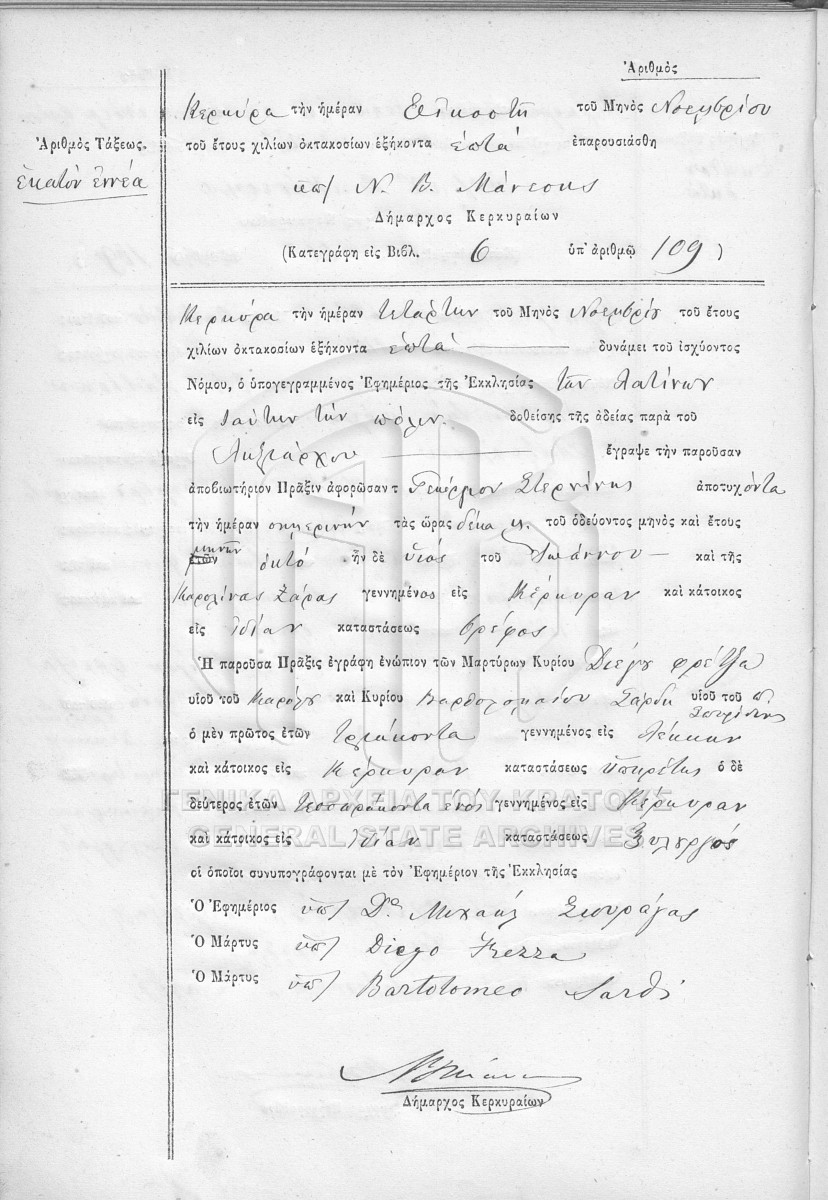 Ἀριθμὸς
Κερκύρα τὴν ἡμέραν Εἰκοστῇ τοῦ Μηνὸς Νοεμβρίου
Ἀριθμὸς Τάξεως.
τοῦ ἔτους χιλίων ὀκτακοσίων ἑξήκοντα ἑπτά ἐπαρουσιάσθη
ἑκατὸν ἐννέα
ὑπ/ Ν. Β. Μάνεσης
Δήμαρχος Κερκυραίων
(Κατεγράφη εἰς Βιβλ. 6 ὑπ' ἀριθμῷ 109 )
Κερκύρα τὴν ἡμέραν τετάρτην τοῦ Μηνὸς Νοεμβρίου τοῦ ἔτους
χιλίων ὀκτακοσίων ἑξήκοντα ἑπτά δυνάμει τοῦ ἰσχύοντος
Νόμου, ὁ ὑπογεγραμμένος Ἐφημέριος τῆς Ἐκκλησίας τῶν Λατίνων
εἰς ταύτην τὴν πόλιν. δοθείσης τῆς ἀδείας παρὰ τοῦ
Ληξιάρχου ἔγραψε τὴν παροῦσαν
ἀποβιωτήριον Πρᾶξιν ἀφορῶσαν τ Γεώργιον Στερνίνης ἀποτυχόντα
τὴν ἡμέραν σημερινήν τὰς ὥρας δέκα τοῦ ὁδεύοντος μηνὸς καὶ ἔτους
μηνῶν
ἐτῶν ὀκτό ἦν δὲ υἱός τοῦ Ἰωάννου καὶ τῆς
Καρολίνας Σάρας γεννημένος εἰς Κέρκυραν καὶ κάτοικος
εἰς ἰδίαν καταστάσεως βρέφος
Ἡ παροῦσα Πρᾶξις ἐγράφη ἐνώπιον τῶν Μαρτύρων Κυρίου Διέγου Φρέτζα
υἱοῦ τοῦ Καρόλου καὶ Κυρίου Βαρθολομαίου Σαρδη υἱοῦ τοῦ π
Σπυρίδωνος
ὁ μὲν πρῶτος ἐτῶν τριάκοντα γεννημένος εἰς Λέκκην
καὶ κάτοικος εἰς Κέρκυραν καταστάσεως ὑπηρέτης ὁ δὲ
δεύτερος ἐτῶν τεσσαράκοντα ἑνός γεννημένος εἰς Κέρκυραν
καὶ κάτοικος εἰς ἰδίαν καταστάσεως Ξυλουργός
οἱ ὁποῖοι συνυπογράφονται μὲ τὸν Ἐφημέριον τῆς Ἐκκλησίας
Ὁ Ἐφημέριος ὑπ/ Dn Μιχαήλ Σπυράγας
Ὁ Μάρτυς ὑπ/ Diego Frezza
Ὁ Μάρτυς ὑπ/ Bartolomeo Sardi
Δήμαρχος Κερκυραίων
ΓΕΝΙΚΑ ΑΡΧΕΙΑ ΤΟΥ ΚΡΑΤΟΥΣ
GENERAL STATE ARCHIVES